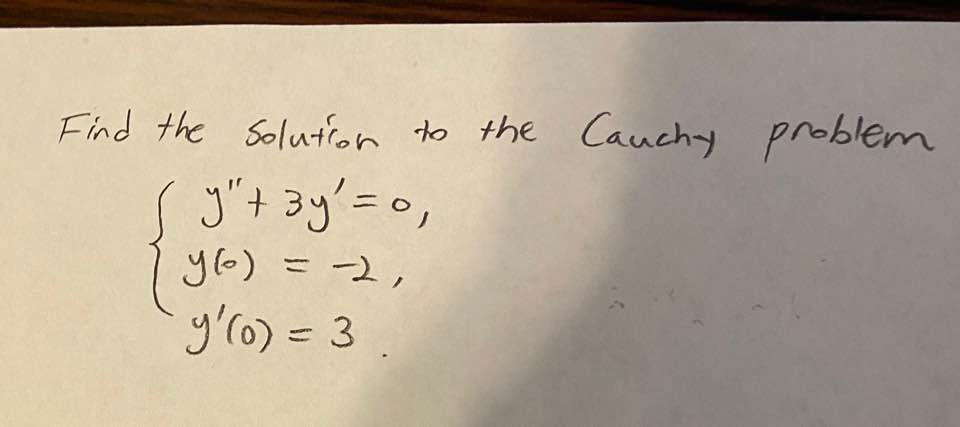 Find the Solution to the Cauchy problem
y"+ 3y' = 0,
y(0) = -2,
y'(0) = 3.